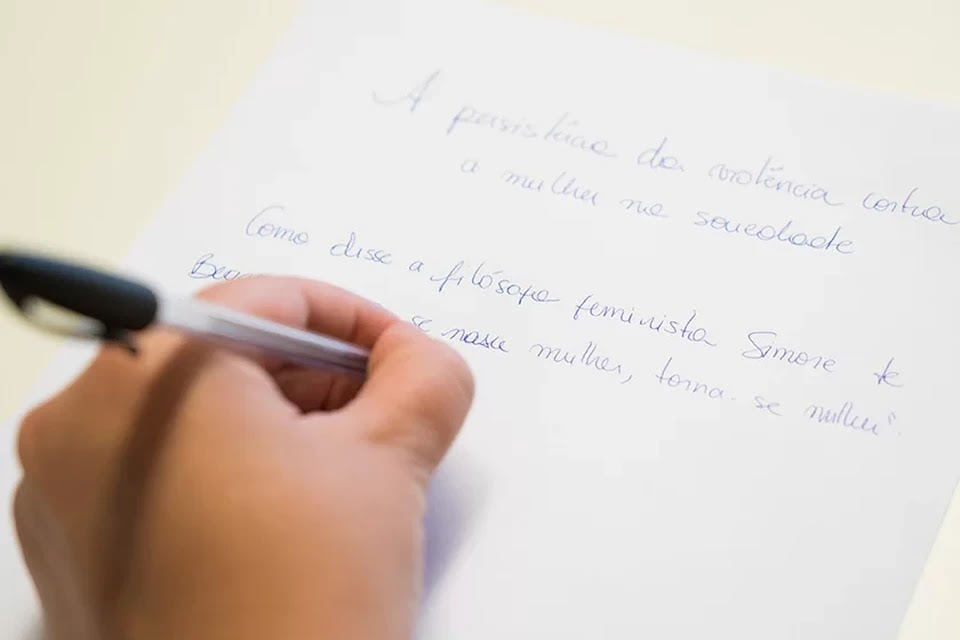 A persistência da violência contra
a mulher na sociedade
Como disse a filósofa feminista Simone de
se nasce mulher, torna-se mulher".